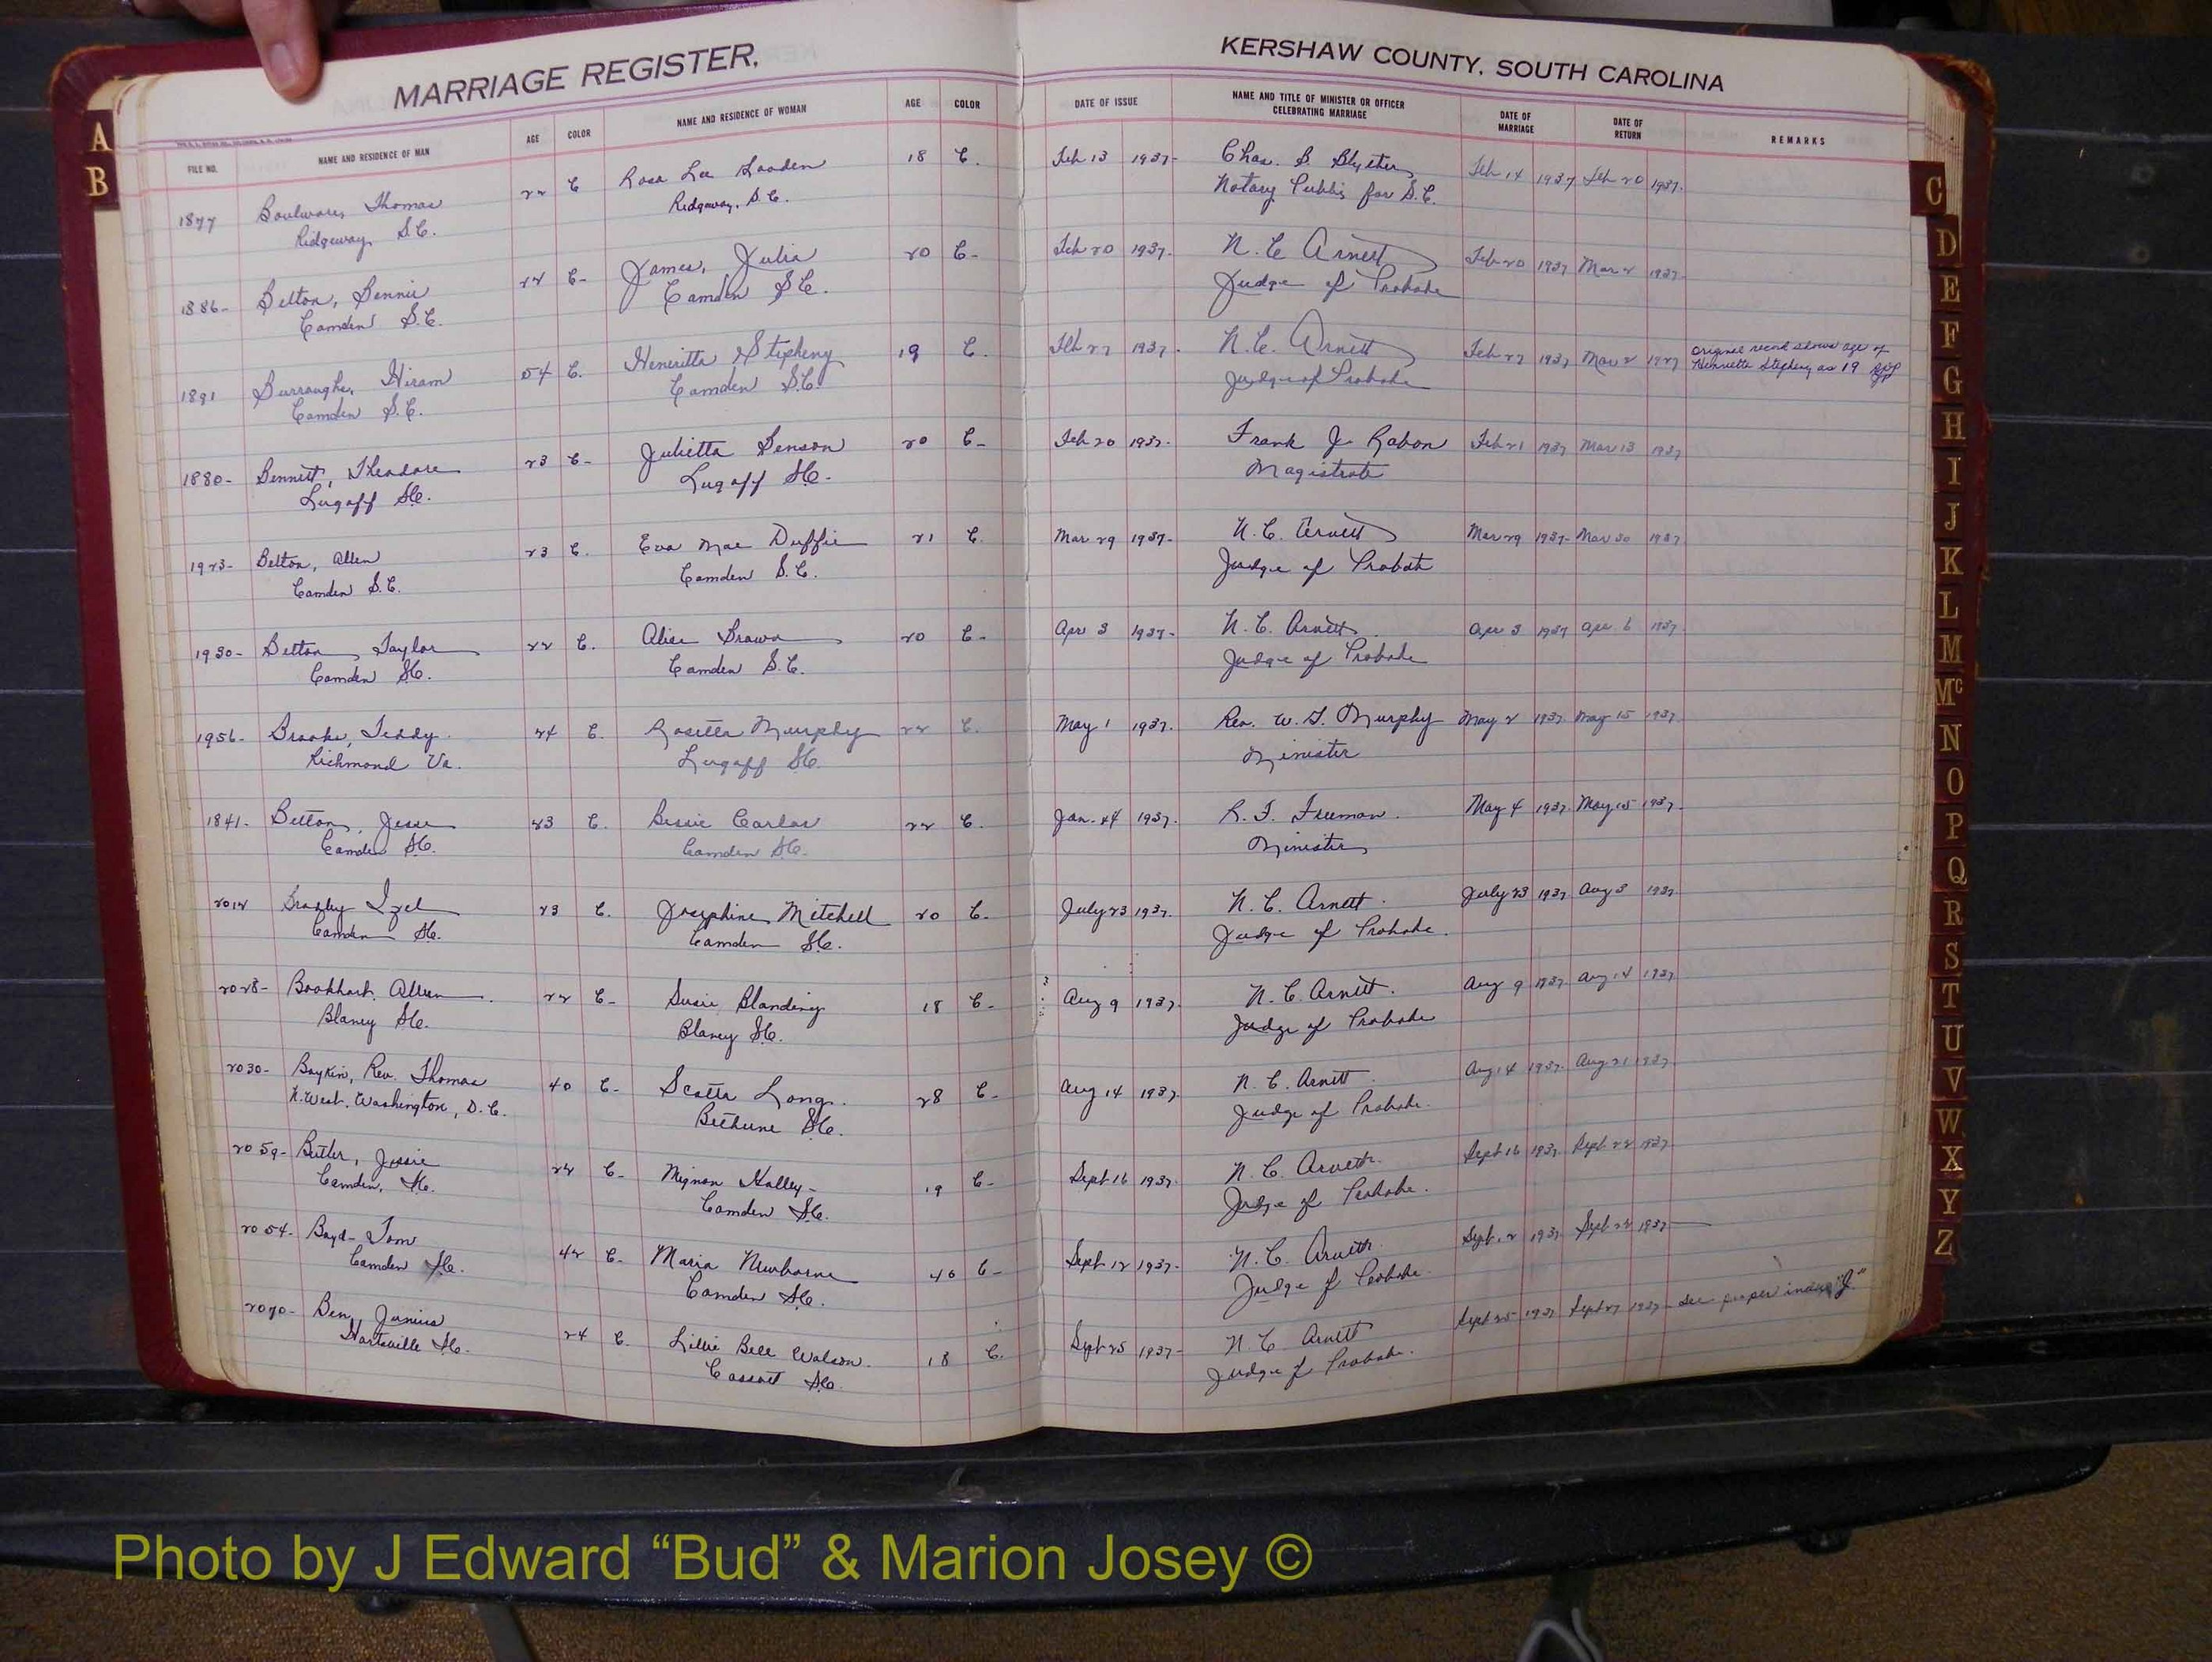 MARRIAGE REGISTER,
KERSHAW COUNTY, SOUTH CAROLINA
FILE NO. NAME AND RESIDENCE OF MAN AGE COLOR NAME AND RESIDENCE OF WOMAN AGE COLOR DATE OF ISSUE NAME AND TITLE OF MINISTER OR OFFICER CELEBRATING MARRIAGE DATE OF MARRIAGE DATE OF RETURN REMARKS
1877 Boulware, Thomas 22 C Rosa Lee 18 C. Feb 13 1937- Chas. B. Feb 14 1937 Feb 20 1937.
Ridgeway S.C. Ridgeway, S.C. Notary Public for S.C.
1886- Belton, Bennie 22 C- James, Julia 20 C- Feb 20 1937. N. C Arnett Feb 20 1937 Mar 2 1937-
Camden S.C. Camden S.C. Judge of Probate
1891 Burroughs, Hiram 54 C. Heneritta Stepheny 19 C. Feb 27 1937. N. C. Arnett Feb 27 1937 Mar 2 1937 Original record shows age of
Camden S.C. Camden S.C. Judge of Probate Henrietta Stepheny as 19
1880- Bennett, Theadore 23 C- Julietta Benson 20 C- Feb 20 1937- Frank J. Rabon Feb 21 1937 Mar 13 1937
Lugoff SC. Lugoff SC. Magistrate
1923- Belton, Allen 23 C. Eva Mae Duffie 21 C. Mar 29 1937- N. C. Arnett Mar 29 1937- Mar 30 1937
Camden S.C. Camden S.C. Judge of Probate
1930- Belton, Taylor 22 C. Alice Brown 20 C- Apr 3 1937- N. C. Arnett Apr 3 1937 Apr 6 1937
Camden SC. Camden S.C. Judge of Probate
1956- Brooks, Teddy. 24 C. Rosetta Murphy 22 C. May 1 1937. Rev. W. T. Murphy May 2 1937. May 15 1937.
Richmond Va. Lugoff SC. Minister
1841- Belton, Jesse 23 C. Bessie Carlos 22 C. Jan. 24 1937. R. T. Freeman. May 4 1937. May 15 1937.
Camden SC. Camden SC. Minister
2012 Bradley 23 C. Josephine Mitchell 20 C- July 23 1937. N. C. Arnett. July 23 1937. Aug 3 1937
Camden SC. Camden SC. Judge of Probate.
2028- Bookhart, 22 C- Susie Blanding 18 C- Aug 9 1937. N. C. Arnett. Aug 9 1937. Aug 14 1937
Blaney SC. Blaney SC. Judge of Probate
2030- Boykin, Rev. Thomas 40 C- Scotta Long. 28 C- Aug 14 1937. N. C. Arnett. Aug 14 1937. Aug 21 1937
N. West. Washington, D.C. Bethune SC. Judge of Probate.
2059- Butler, Jessie 22 C- Mignon Halley- 19 C- Sept 16 1937. N. C. Arnett. Sept 16 1937. Sept 22 1937
Camden, SC. Camden SC. Judge of Probate.
2054- Boyd- Tom 42 C- Maria Newborne 40 C- Sept 12 1937- N. C. Arnett. Sept. 12 1937. Sept 22 1937
Camden SC. Camden SC. Judge of Probate.
2070- Ben, Junius 24 C. Lillie Bell Watson. 18 C. Sept 25 1937- N. C Arnett Sept 25 1937 Sept 27 1937- See proper index "J"
Hartsville SC. Cassatt SC. Judge of Probate.
A
B
C
D
E
F
G
H
I
J
K
L
M
Mc
N
O
P
Q
R
S
T
U
V
W
X
Y
Z
Photo by J Edward “Bud” & Marion Josey ©